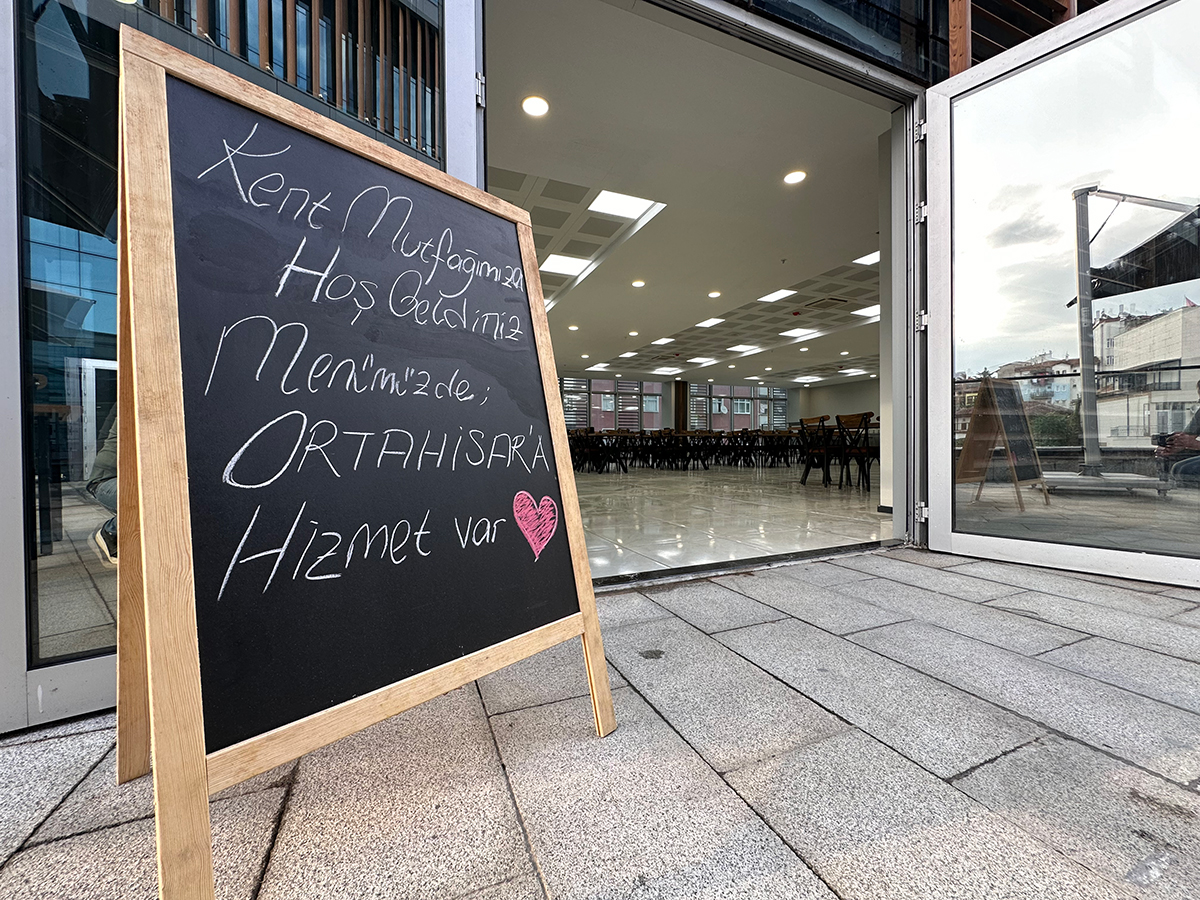 Kent Mutfağımıza
Hoş Geldiniz
Menümüzde;
ORTAHİSAR'A
Hizmet var